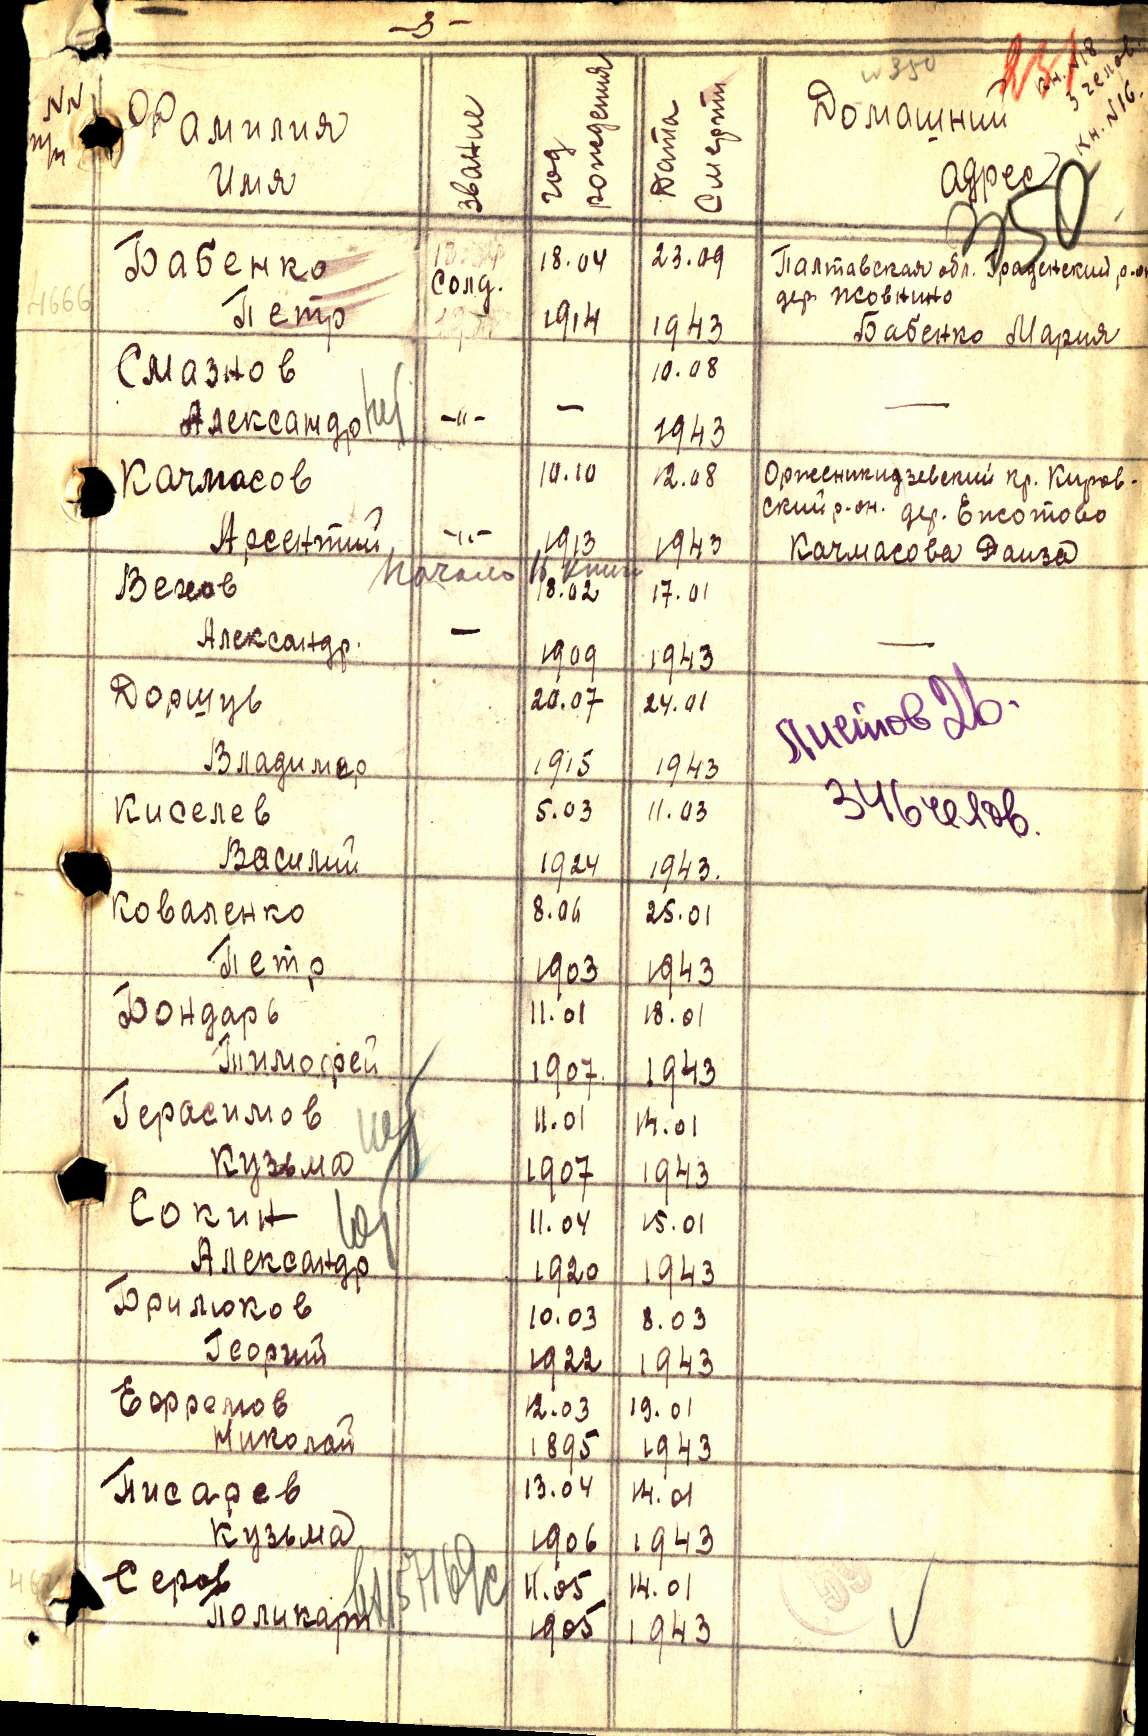 -3-
№350
231
Кн. №18
3 челов.
Кн. №16.
NN
п/п
Фамилия
Имя
звание
год
рождения
Дата
Смерти
Домашний
адрес
350
4666
Бабенко
Петр
Солд.
18.04
1914
23.09
1943
Палтавская обл. Граденский р-он
дер. Жовнино
Бабенко Мария
Смазнов
Александр
-"-
—
10.08
1943
—
Качмасов
Арсентий
-"-
10.10
1913
12.08
1943
Орженикидзевский кр. Киров-
ский р-он. дер. Екотово
Качмасова Раиза
Начало 16 книги
Вехов
Александр.
—
18.02
1909
17.01
1943
—
Доршув
Владимир
20.07
1915
24.01
1943
Листов 26.
346 челов.
Киселев
Василий
5.03
1924
11.03
1943.
Коваленко
Петр
8.06
1903
25.01
1943
Бондарь
Тимофей
11.01
1907.
18.01
1943
Герасимов
Кузьма
11.01
1907
14.01
1943
Сокин
Александр
11.04
1920
15.01
1943
Брилюков
Георгий
10.03
1922
8.03
1943
Ефремов
Николай
12.03
1895
19.01
1943
Писарев
Кузьма
13.04
1906
14.01
1943
Серов
Поликарп
11.05
1905
14.01
1943